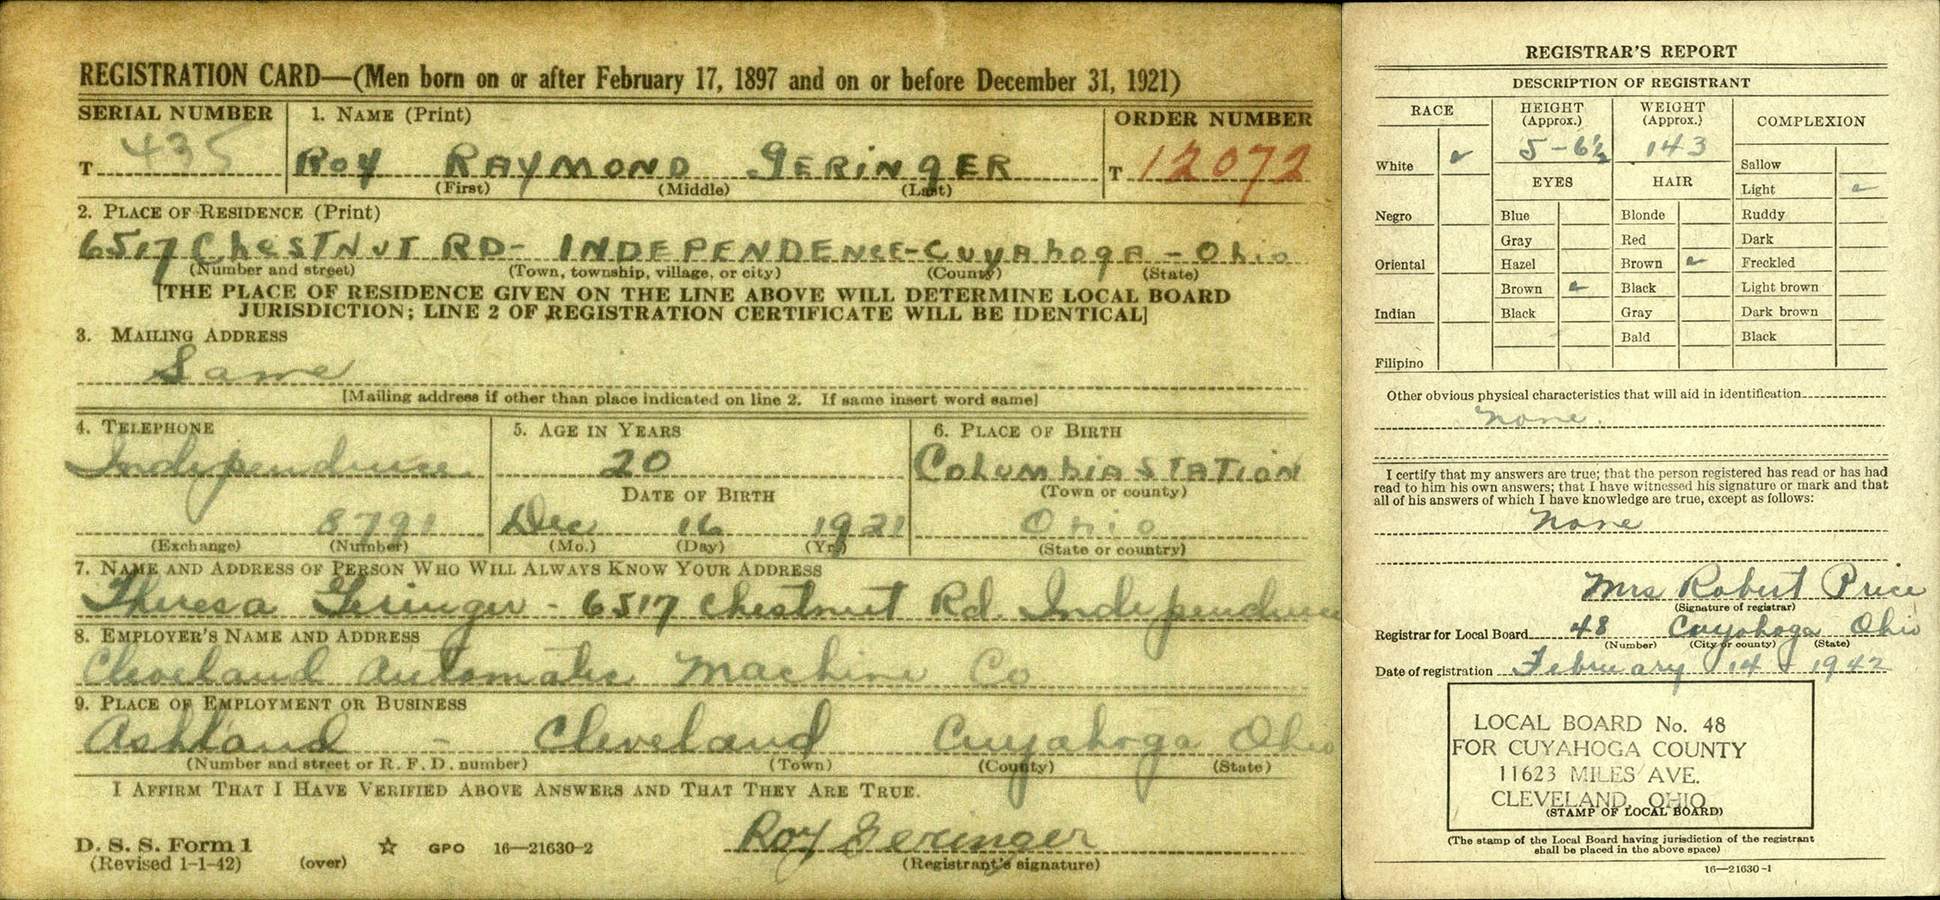 REGISTRATION CARD—(Men born on or after February 17, 1897 and on or before December 31, 1921)
SERIAL NUMBER
1. NAME (Print)
ORDER NUMBER
T 435
ROY RAYMOND GERINGER
T 12072
(First) (Middle) (Last)
2. PLACE OF RESIDENCE (Print)
6517 ChESTNUT RD- INDEPENDENCE-CUYAhogA-Ohio
(Number and street) (Town, township, village, or city) (County) (State)
[THE PLACE OF RESIDENCE GIVEN ON THE LINE ABOVE WILL DETERMINE LOCAL BOARD
JURISDICTION; LINE 2 OF REGISTRATION CERTIFICATE WILL BE IDENTICAL]
3. MAILING ADDRESS
Same
[Mailing address if other than place indicated on line 2. If same insert word same]
4. TELEPHONE
5. AGE IN YEARS
6. PLACE OF BIRTH
Independence
20
COLUMBIA STATION
DATE OF BIRTH
(Town or county)
8791
Dec 16 1921
Ohio
(Exchange) (Number)
(Mo.) (Day) (Yr.)
(State or country)
7. NAME AND ADDRESS OF PERSON WHO WILL ALWAYS KNOW YOUR ADDRESS
Theresa Geringer - 6517 Chestnut Rd. Independence
8. EMPLOYER'S NAME AND ADDRESS
Cleveland Automatic Machine Co
9. PLACE OF EMPLOYMENT OR BUSINESS
Ashland - Cleveland Cuyahoga Ohio
(Number and street or R. F. D. number) (Town) (County) (State)
I AFFIRM THAT I HAVE VERIFIED ABOVE ANSWERS AND THAT THEY ARE TRUE.
D. S. S. Form 1
(Revised 1-1-42) (over) ☆ GPO 16—21630-2
Roy Geringer
(Registrant's signature)
REGISTRAR'S REPORT
DESCRIPTION OF REGISTRANT
RACE
HEIGHT (Approx.)
WEIGHT (Approx.)
COMPLEXION
White ✓
5-6½
143
Sallow
EYES
HAIR
Light ✓
Negro
Blue
Blonde
Ruddy
Gray
Red
Dark
Oriental
Hazel
Brown ✓
Freckled
Brown ✓
Black
Light brown
Indian
Black
Gray
Dark brown
Bald
Black
Filipino
Other obvious physical characteristics that will aid in identification
None.
I certify that my answers are true; that the person registered has read or has had
read to him his own answers; that I have witnessed his signature or mark and that
all of his answers of which I have knowledge are true, except as follows:
None
Mrs Robert Price
(Signature of registrar)
Registrar for Local Board 48 Cuyahoga Ohio
(Number) (City or county) (State)
Date of registration February 14 1942
LOCAL BOARD No. 48
FOR CUYAHOGA COUNTY
11623 MILES AVE.
CLEVELAND, OHIO
(STAMP OF LOCAL BOARD)
(The stamp of the Local Board having jurisdiction of the registrant
shall be placed in the above space)
16—21630-1